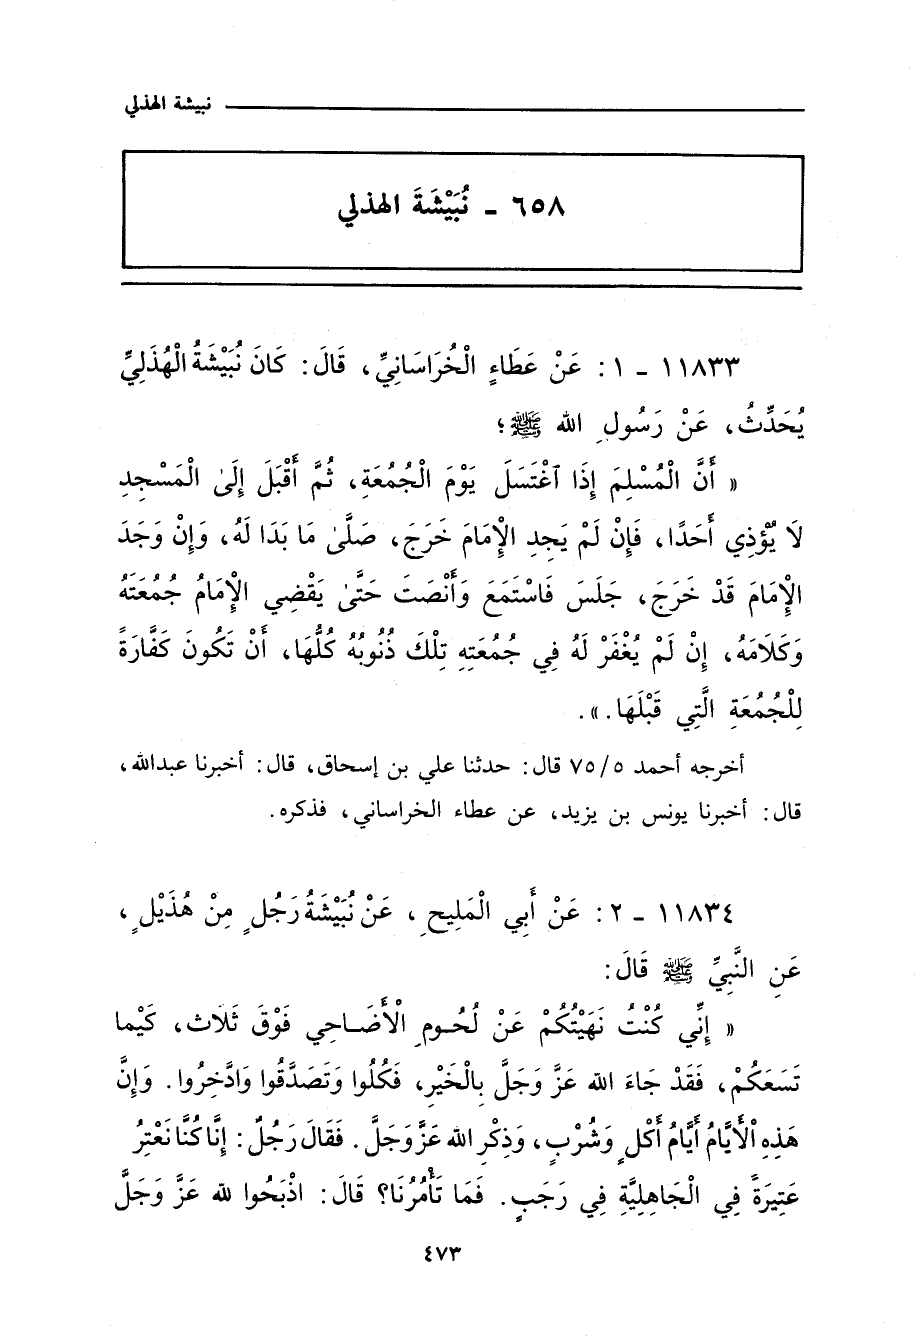 نبيشة الهذلي
٦٥٨ - نُبَيْشَةَ الهذلي
١١٨٣٣ - ١: عَنْ عَطَاءٍ الْخُرَاسَانِيِّ، قَالَ: كَانَ نُبَيْشَةُ الْهُذَلِيِّ
يُحَدِّثُ، عَنْ رَسُولِ الله ﷺ؛
« أَنَّ الْمُسْلِمَ إِذَا آغْتَسَلَ يَوْمَ الْجُمُعَةِ، ثُمَّ أَقْبَلَ إِلَىٰ الْمَسْجِدِ
لاَ يُؤْذِي أَحَدًا، فَإِنْ لَمْ يَجِدِ الْإِمَامَ خَرَجَ، صَلَّىٰ مَا بَدَا لَهُ، وَإِنْ وَجَدَ
الْإِمَامَ قَدْ خَرَجَ، جَلَسَ فَاسْتَمَعَ وَأَنْصَتَ حَتَّىٰ يَقْضِي الْإِمَامُ جُمُعَتَهُ
وَكَلَامَهُ، إِنْ لَمْ يُغْفَرْ لَهُ فِي جُمُعَتِهِ تِلْكَ ذُنُوبُهُ كُلُّهَا، أَنْ تَكُونَ كَفَّارَةً
لِلْجُمُعَةِ الَّتِي قَبْلَهَا.».
أخرجه أحمد ٧٥/٥ قال: حدثنا علي بن إسحاق، قال: أخبرنا عبدالله،
قال: أخبرنا يونس بن يزيد، عن عطاء الخراساني، فذكره.
١١٨٣٤ - ٢: عَنْ أَبِي الْمَلِيحِ، عَنْ نُبَيْشَةُ رَجُلٍ مِنْ هُذَيْلٍ،
عَنِ النَّبِيِّ ﷺ قَالَ:
« إِنِّي كُنْتُ نَهَيْتُكُمْ عَنْ لُحُومِ الْأَضَاحِي فَوْقَ ثَلَاث، كَيْما
تَسَعَكُمْ، فَقَدْ جَاءَ الله عَزَّ وَجَلَّ بِالْخَيْرِ، فَكُلُوا وَتَصَدَّقُوا وَادَّخِرُوا. وَإِنَّ
هَذِهِ الْأَيَّامُ أَيَّامُ أَكْلٍ وَشُرْبٍ، وَذِكْرِ الله عَزَّ وَجَلَّ. فَقَالَ رَجُلٌ: إِنَّا كُنَّا نَعْتِرُ
عَتِيرَةً فِي الْجَاهِلِيَّةِ فِي رَجَبٍ. فَمَا تَأْمُرُنَا؟ قَالَ: اذْبَحُوا لله عَزَّ وَجَلَّ
٤٧٣